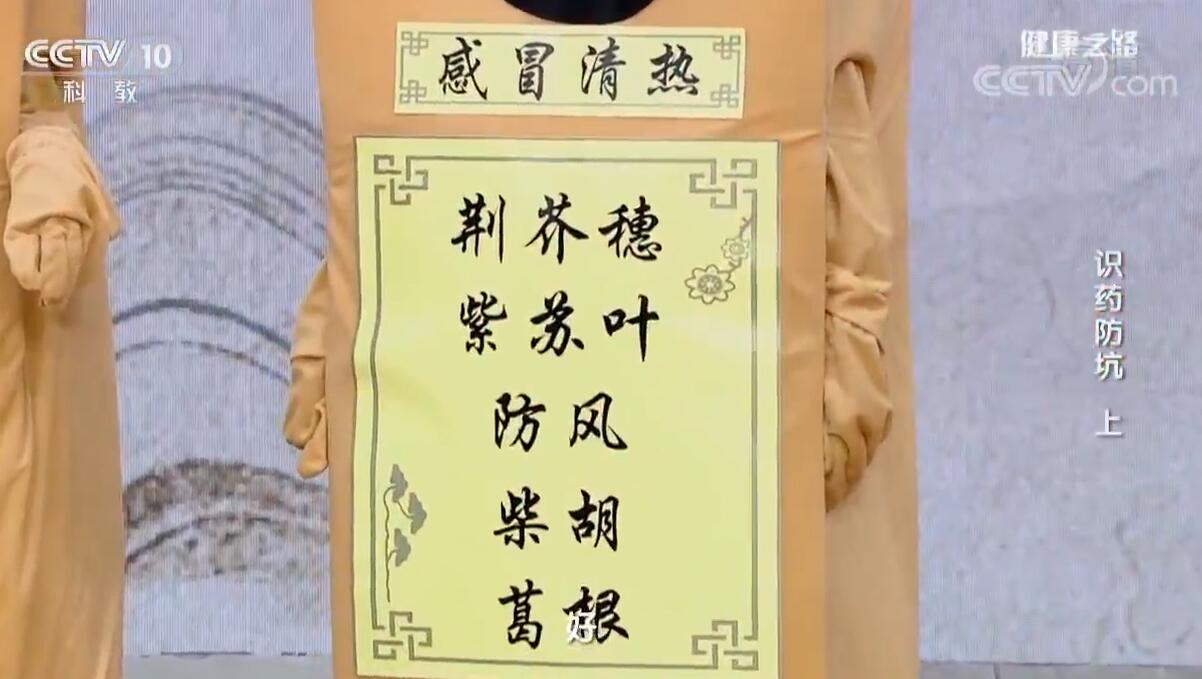 CCTV 10
科教
健康之路
CCTV.com
感冒清热
荆芥穗
紫苏叶
防风
柴胡
葛根
好
识药防坑 上